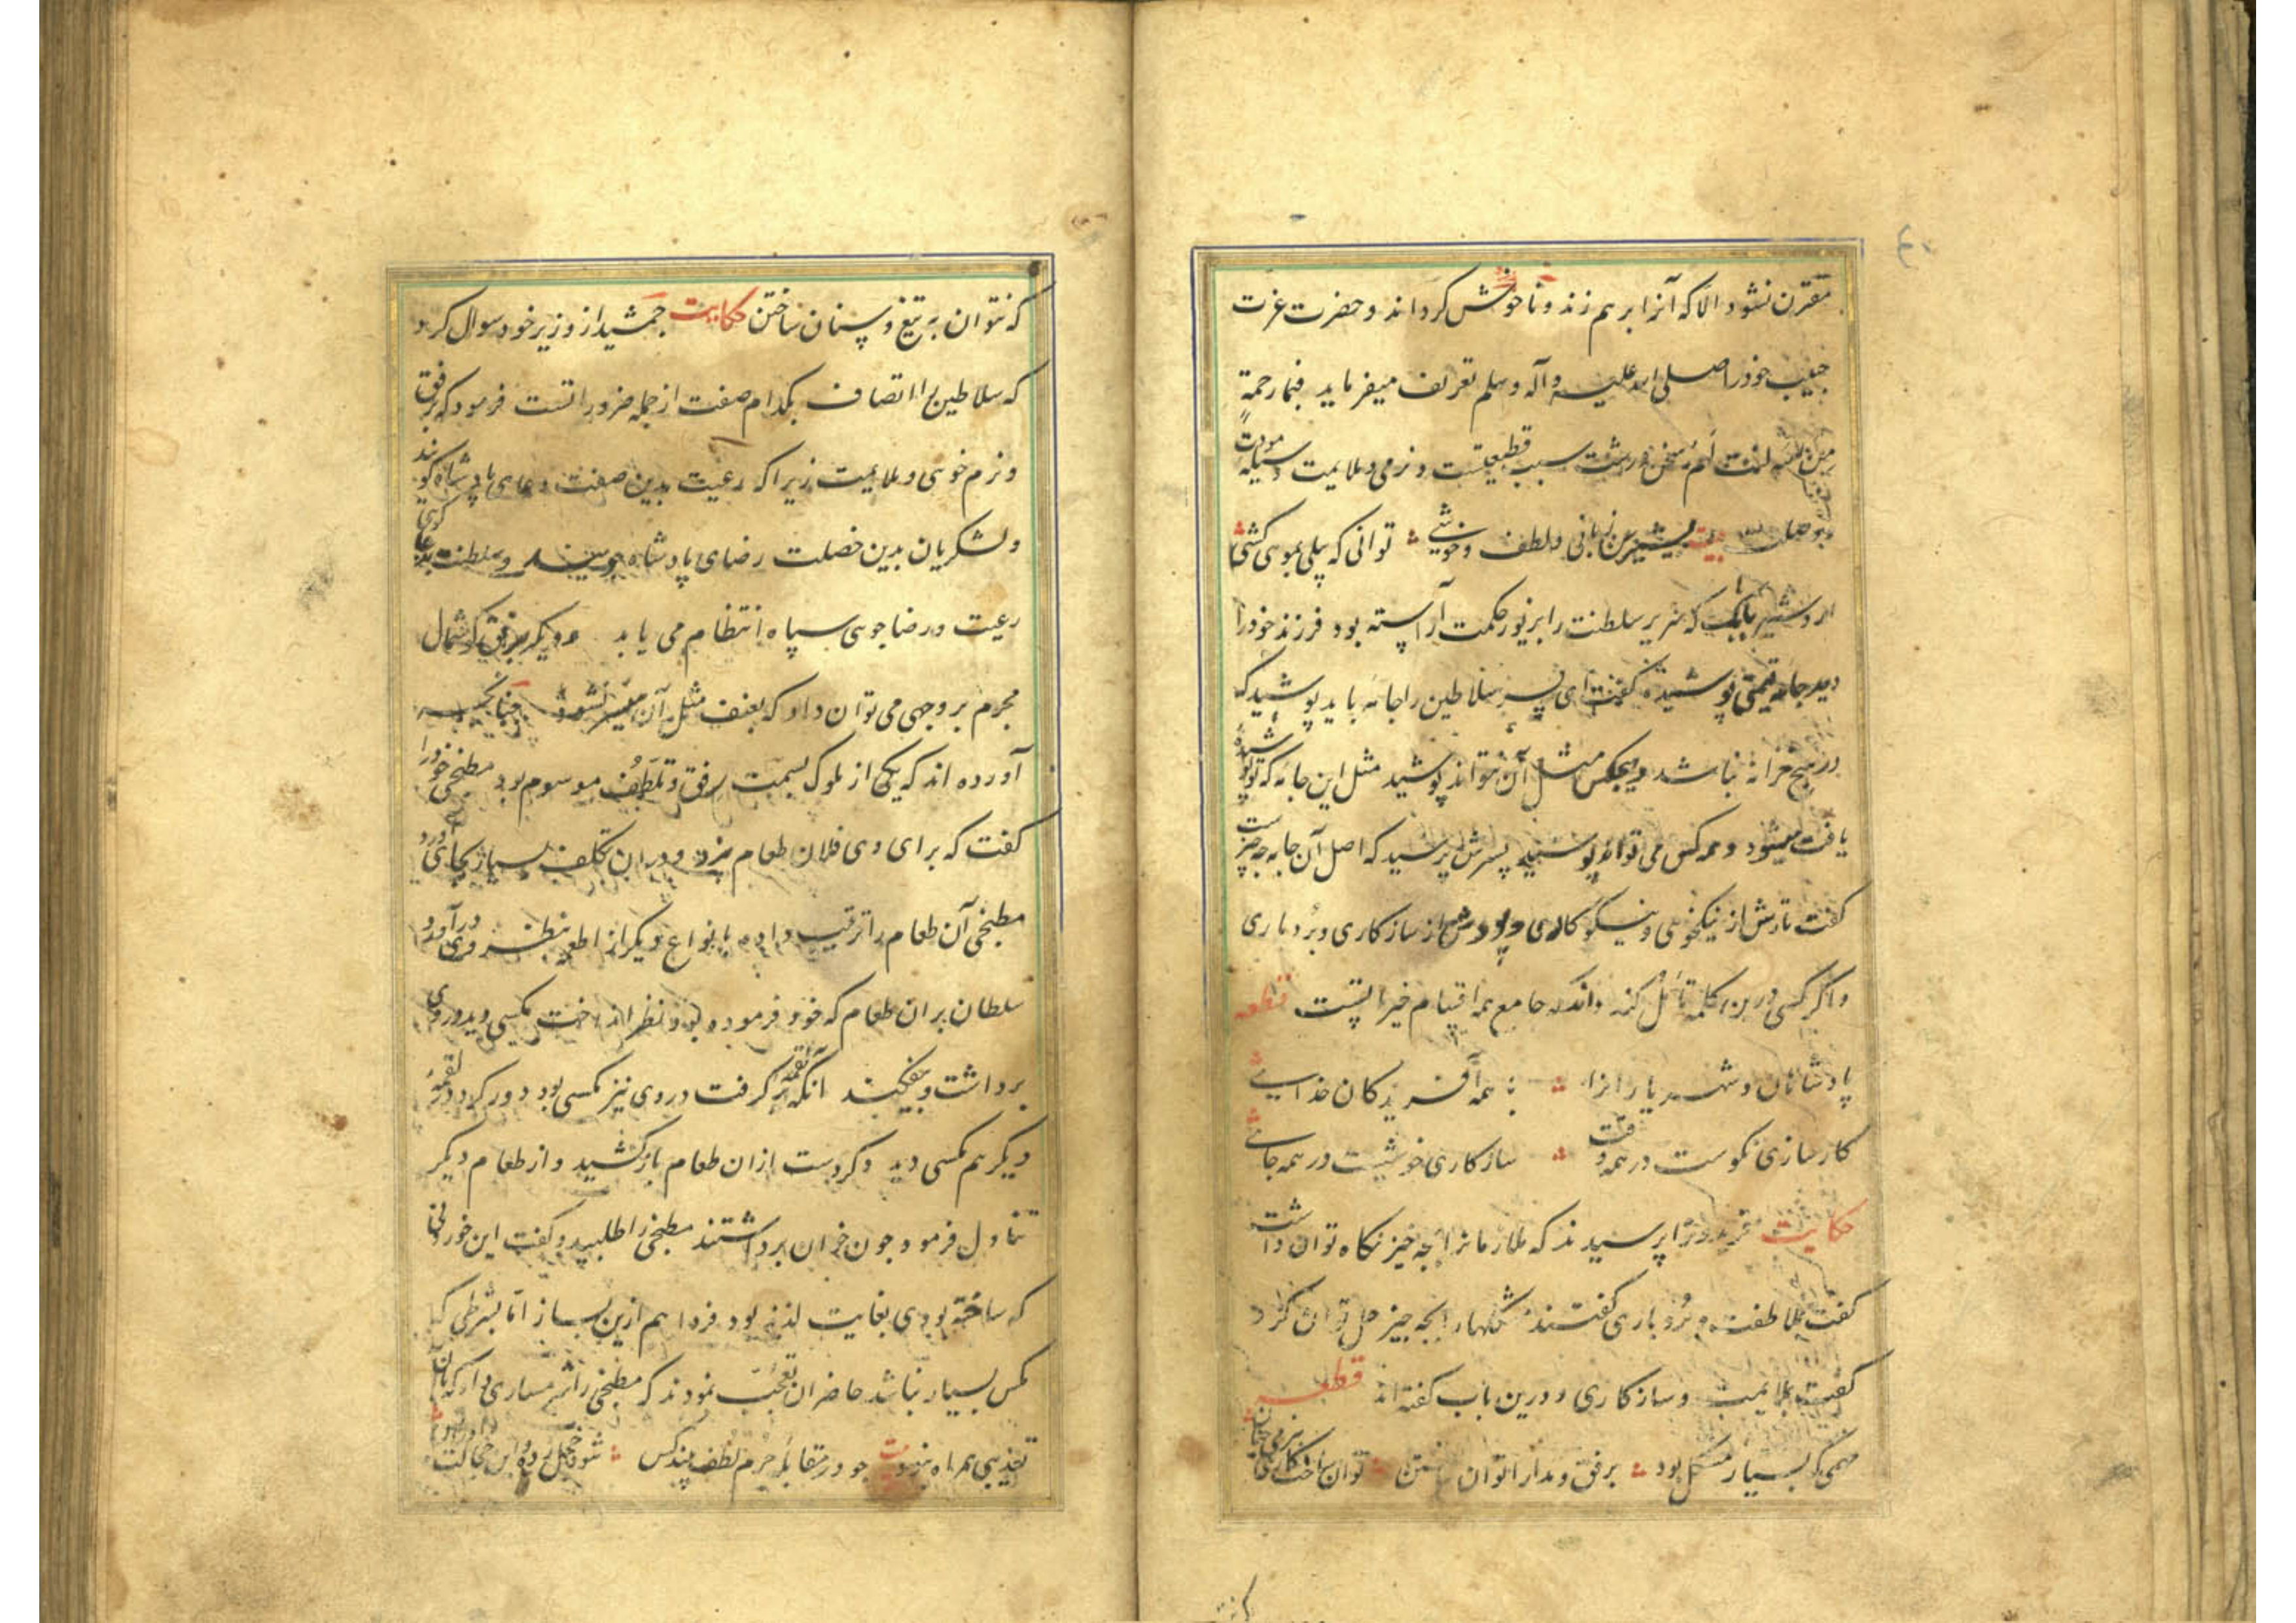 مقترن نشود الا که آنرا بر هم زند و ناخوش کرداند و حضرت عزت
حبیب خود را صلی الله علیه وآله وسلم تعریف میفرماید فبما رحمة
من الله لنت لهم سخن درشت سبب قطیعتست و نرمی و ملایمت وسیله مودت
و وصلت بیت بشیرین زبانی و لطف و خوشی توانی که پیلی بموی کشی
اردشیر بابک که سریر سلطنت را بزیور حکمت آراسته بود فرزند خود را
دید جامه قیمتی پوشیده گفت ای پسر سلاطین را جامه باید پوشید که
در هیچ خزانه نباشد و هیچکس مثل آن نتواند پوشید مثل این جامه که تو پوشیده
یافت میشود و همه کس می تواند پوشید پسرش پرسید که اصل آن جامه چه چیزست
گفت تارش از نیکخویی و نیکو کاری و پودش از ساز کاری و بردباری
و اگر کسی درین کلمه تأمل کند داند که جامع همه اقسام خیراتست قطعه
پادشاهان و شهریارانرا با همه آفریدگان خدای
کار سازی نکوست در همه وقت سازکاری خوشیست در همه جای
حکایت فریدونرا پرسیدند که ملازمانرا بچه چیز نکاه توان داشت
گفت بملاطفت و بردباری گفتند مشکلها را بچه چیز حل توان کرد
گفت بملایمت و ساز کاری و درین باب گفته اند قطعه
مهمی که بسیار مشکل بود برفق و مدارا توان ساختن توان ساخت کاری بنرمی چنان
که نتوان به تیغ و سنان ساختن حکایت جمشید از وزیر خود سوال کرد
که سلاطین را اتصاف بکدام صفت از جمله ضروراتست فرمود که برفق
و نرم خویی و ملایمت زیرا که رعیت بدین صفت دعای پادشاه گویند
و لشکریان بدین خصلت رضای پادشاه جویند و سلطنت بدعا گویی
رعیت و رضا جویی سپاه انتظام می یابد و دیکر برفق گوشمال
مجرم بر وجهی می توان داد که بعنف مثل آن میسر نشود چنانچه
آورده اند که یکی از ملوک بسمت رفق و تلطف موسوم بود مطبخی خود را
گفت که برای وی فلان طعام پزد و در آن تکلف بسیار بجای آورد
مطبخی آن طعام را ترتیب داده با انواع دیکر از اطعمه بنظر وی درآورد
سلطان بران طعام که خود فرموده بود نظر انداخت مکسی دید در وی
برداشت و بیفکند آنکه لقمه برگرفت در وی نیز مکسی بود دور کرد در لقمه
دیکر هم مکسی دید دکر دست ازان طعام باز کشید و از طعام دیکر
تناول فرمود چون خوان برداشتند مطبخی را طلبید و گفت این خوردنی
که ساخته بودی بغایت لذیذ بود فردا هم ازین بساز اما بشرطی که
مکس بسیار نباشد حاضران تعجب نمودند که مطبخی را شرمساری داد که با آن
تعذیبی همراه نبود بیت چو در مقابله جرم لطف بیند کس شود خجل زده و این خجالت